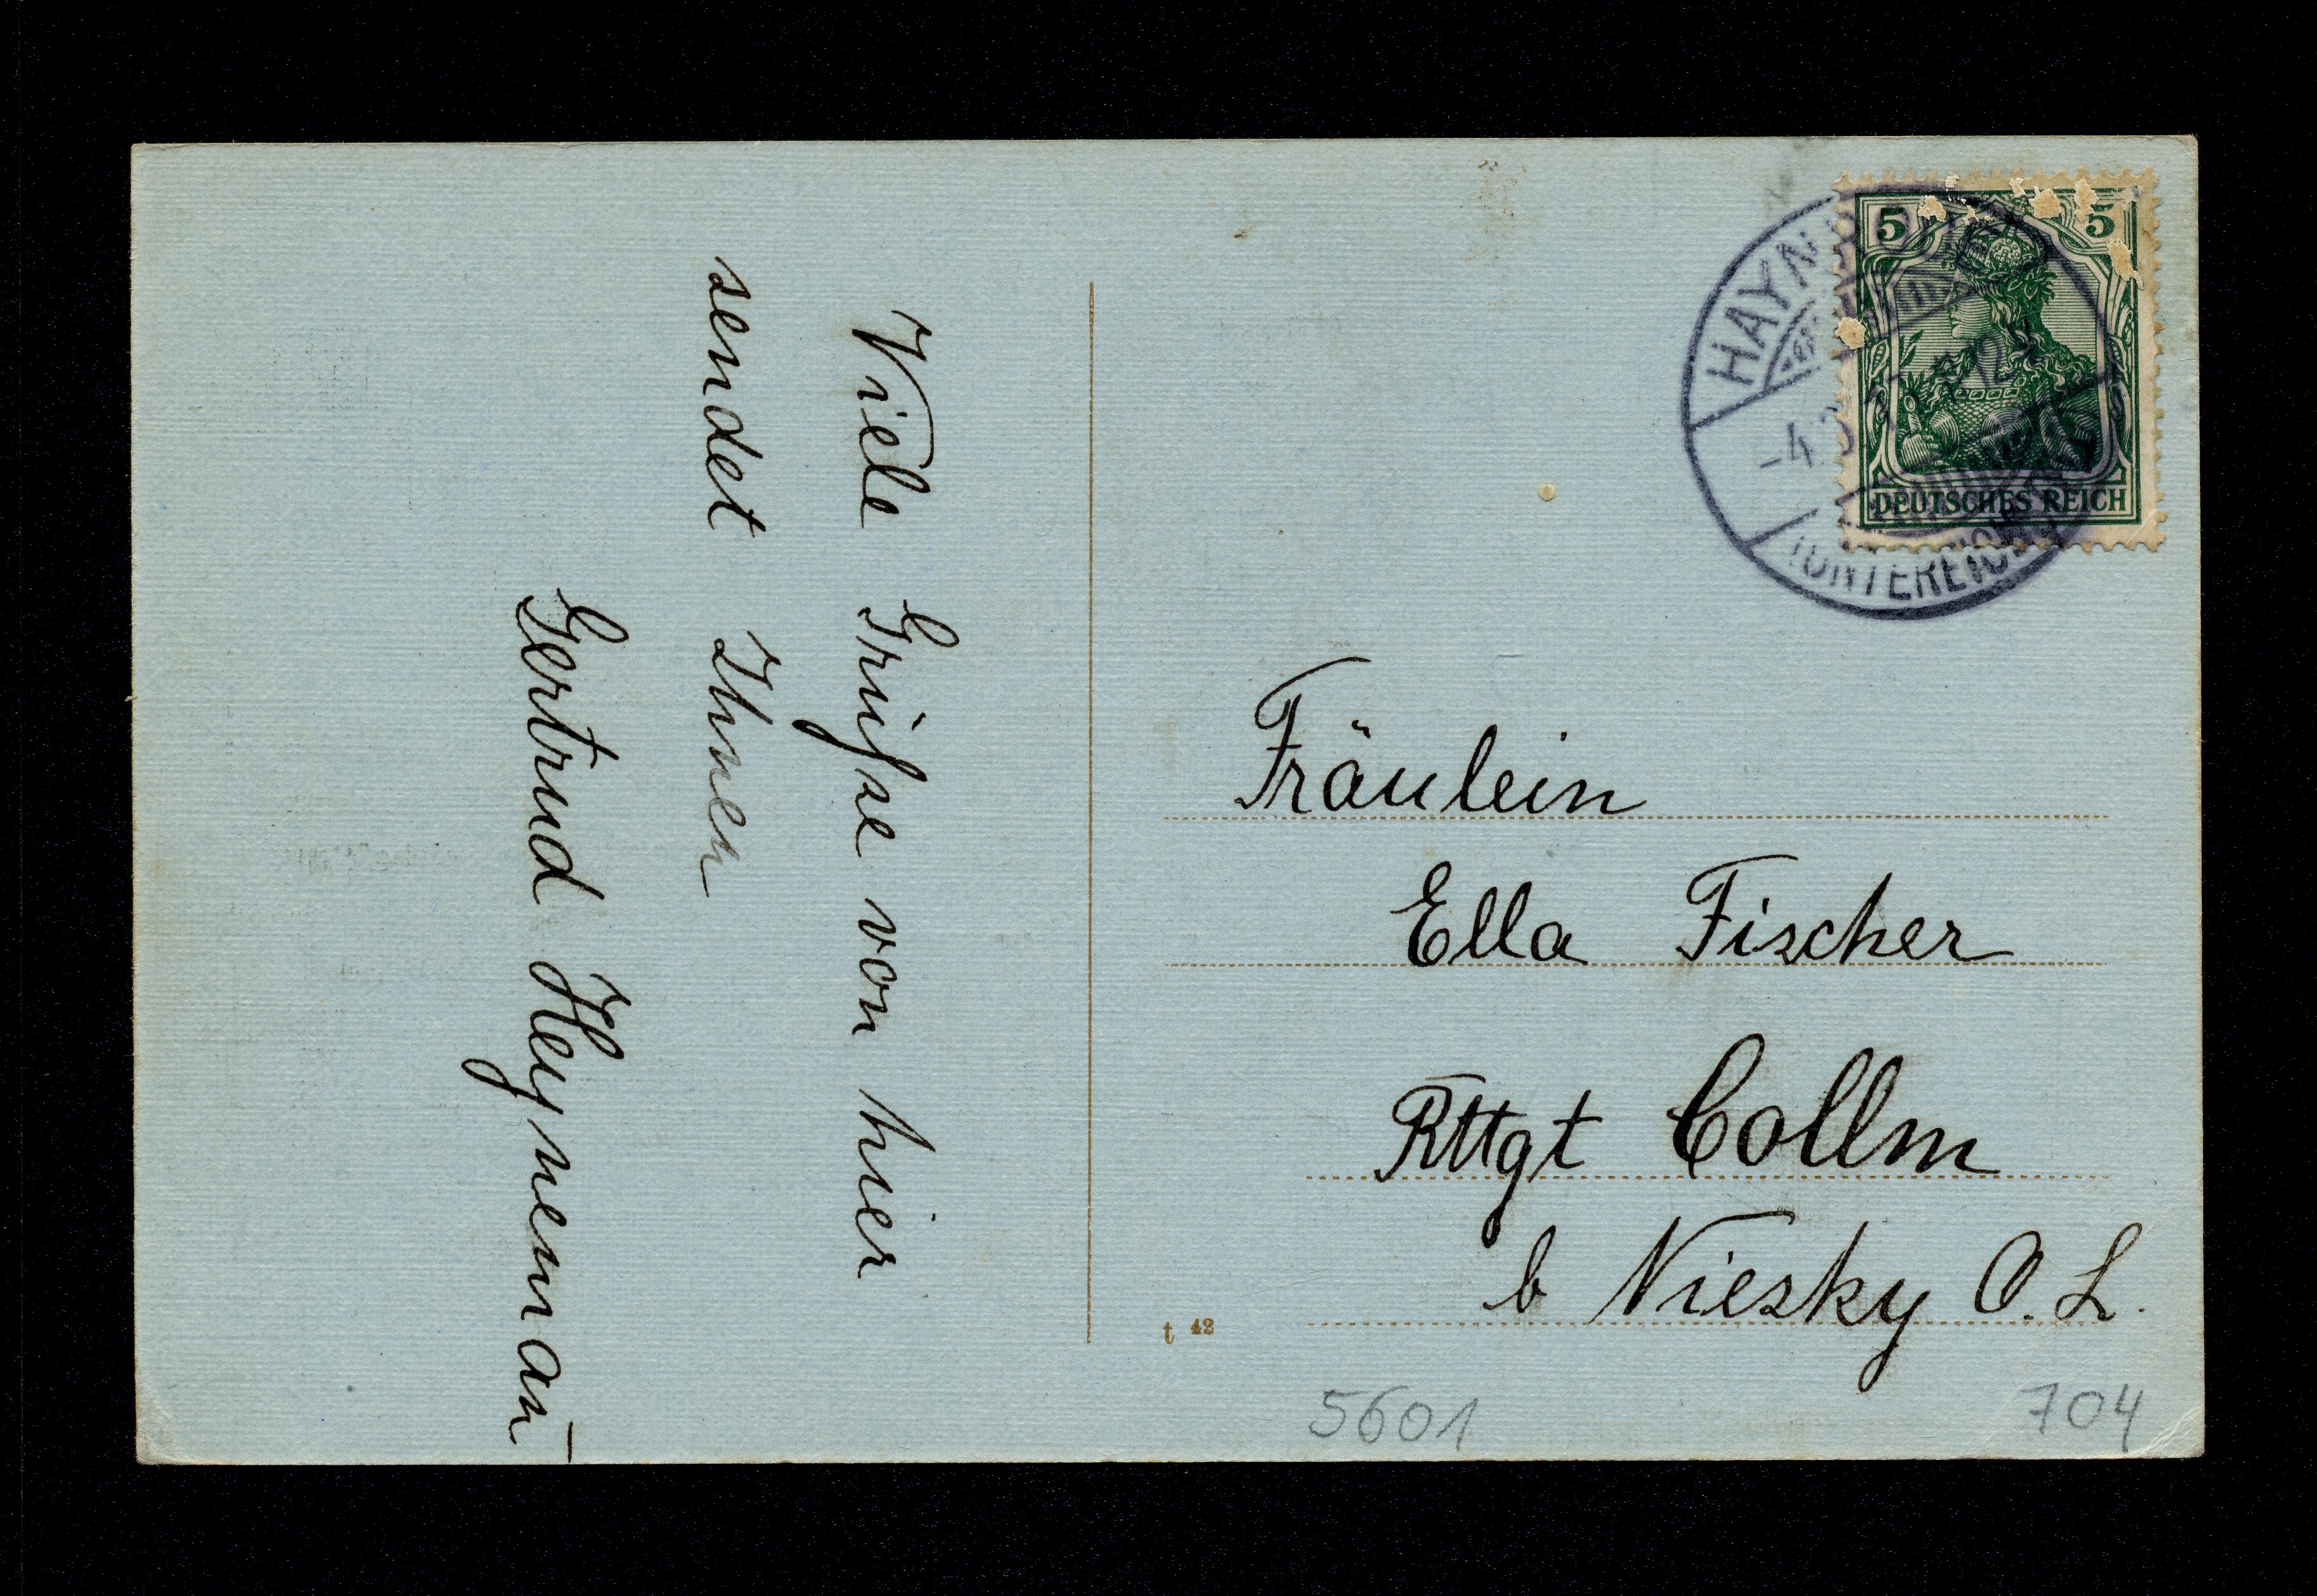 Viele Grüfse von hier
sendet Ihnen
Gertrud Heynemañ
5 5
DEUTSCHES REICH
Fräulein
Ella Fischer
Rttgt Collm
b Niesky O. L.
t 42
5601
704